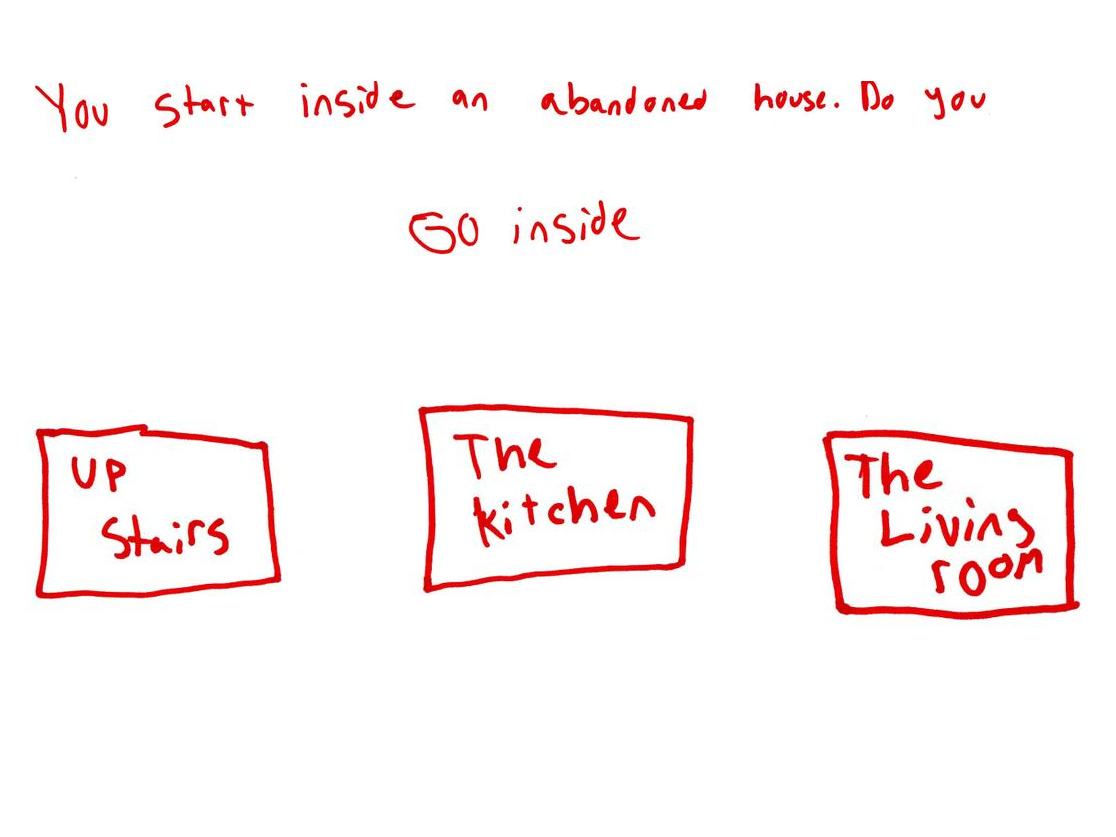 You start inside an abandoned house. Do you
GO inside
UP
stairs
The
kitchen
The
Living
room